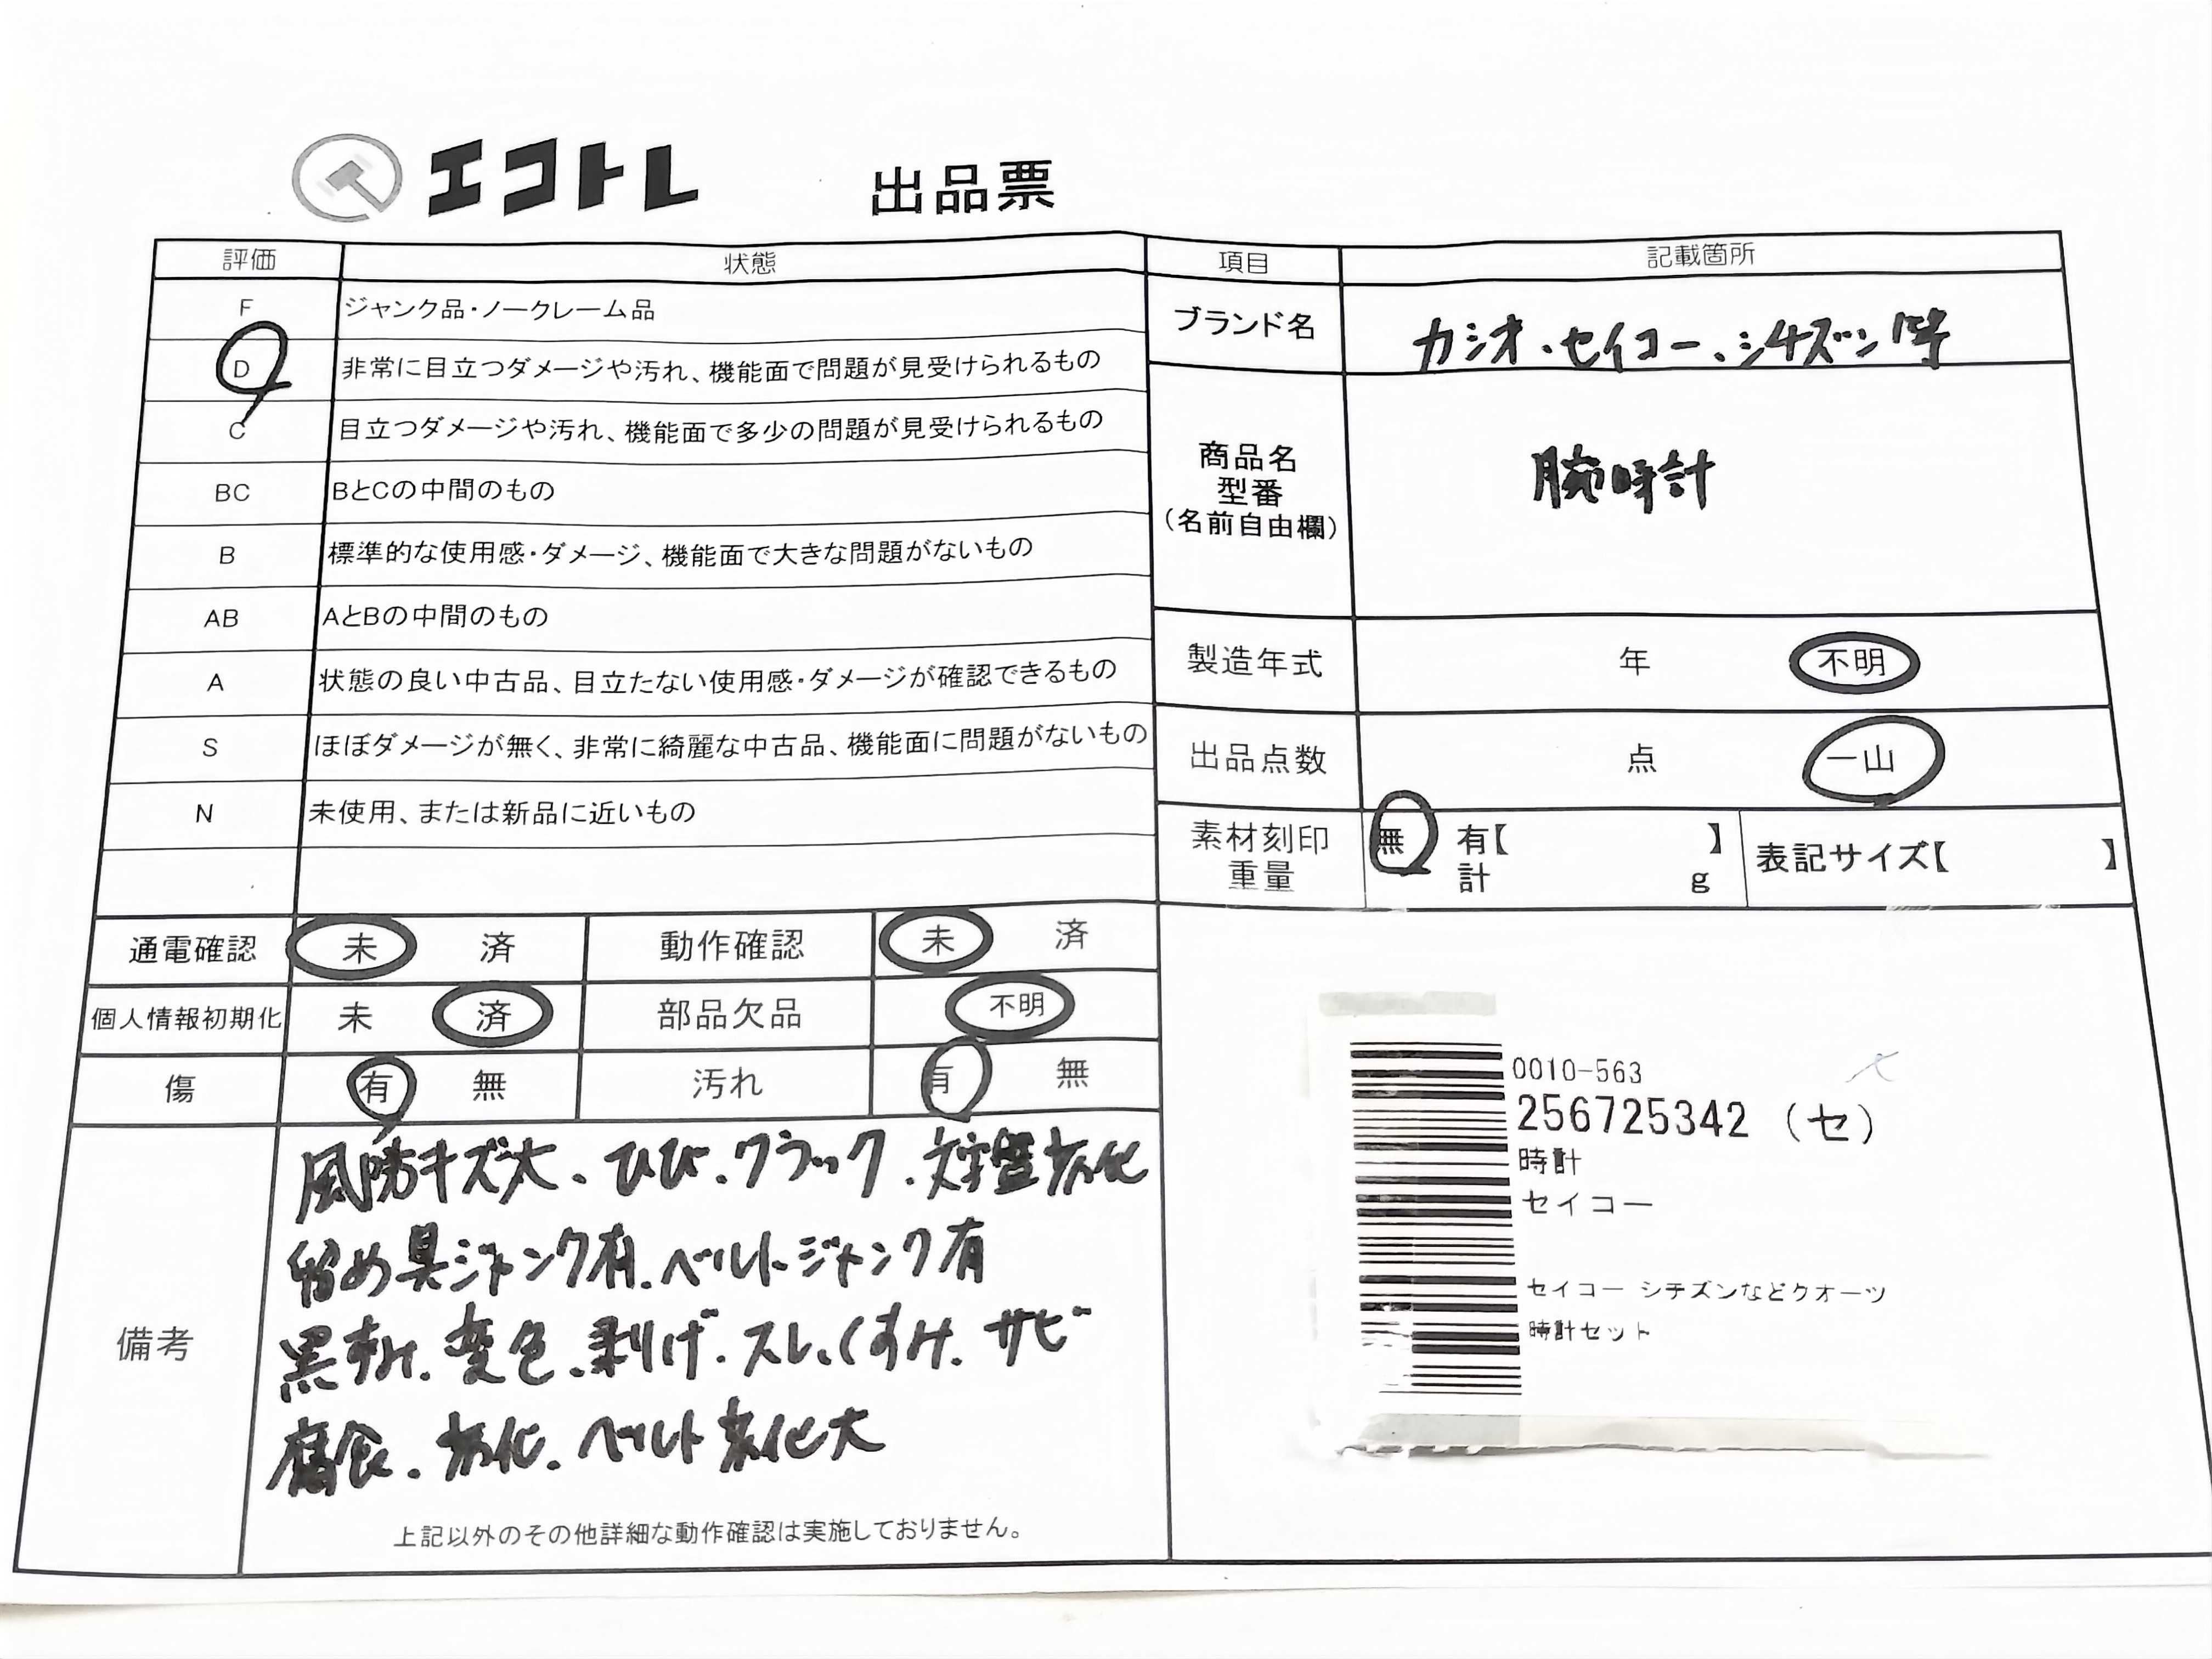 エコトレ 出品票
評価 状態 項目 記載箇所
F ジャンク品・ノークレーム品
D 非常に目立つダメージや汚れ、機能面で問題が見受けられるもの
C 目立つダメージや汚れ、機能面で多少の問題が見受けられるもの
BC BとCの中間のもの
B 標準的な使用感・ダメージ、機能面で大きな問題がないもの
AB AとBの中間のもの
A 状態の良い中古品、目立たない使用感・ダメージが確認できるもの
S ほぼダメージが無く、非常に綺麗な中古品、機能面に問題がないもの
N 未使用、または新品に近いもの
ブランド名 カシオ、セイコー、シチズン等
商品名
型番
(名前自由欄)
腕時計
製造年式 年 不明
出品点数 点 一山
素材刻印
重量
無 有【 】
計 g
表記サイズ【 】
通電確認 未 済 動作確認 未 済
個人情報初期化 未 済 部品欠品 不明
傷 有 無 汚れ 有 無
備考
風防キズ大、ひび、クラック、文字盤劣化
留め具ジャンク有、ベルトジャンク有
黒ずみ、変色、剥げ、スレ、くすみ、サビ
腐食、劣化、ベルト劣化大
上記以外のその他詳細な動作確認は実施しておりません。
0010-563
256725342 (セ)
時計
セイコー
セイコー シチズンなどクオーツ
時計セット